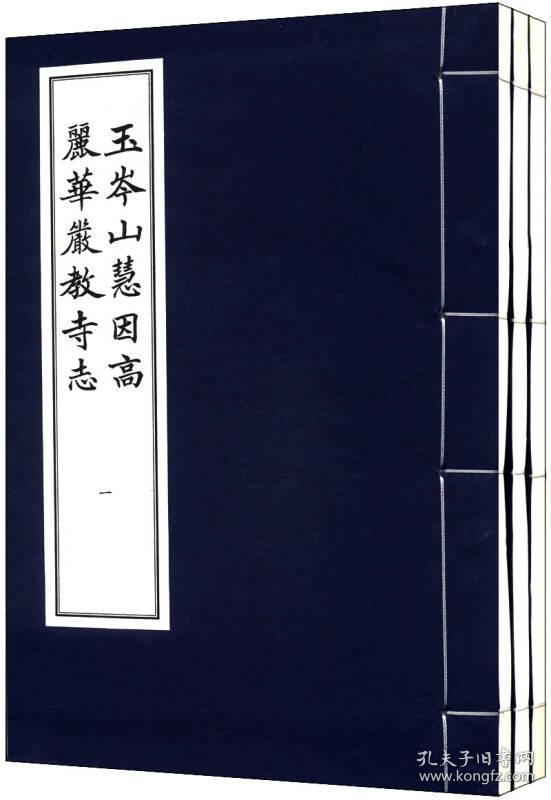 玉岑山慧因高
麗華嚴教寺志
一
孔夫子旧书网
www.kongfz.com